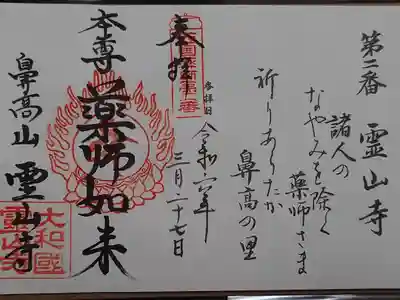 第二番 霊山寺
諸人の
なやみを除く
薬師さま
祈りあらたか
鼻高の里
参拝日
令和六年
三月二十七日
奉拝
本尊 薬師如来
鼻高山 霊山寺
大和國
霊山寺